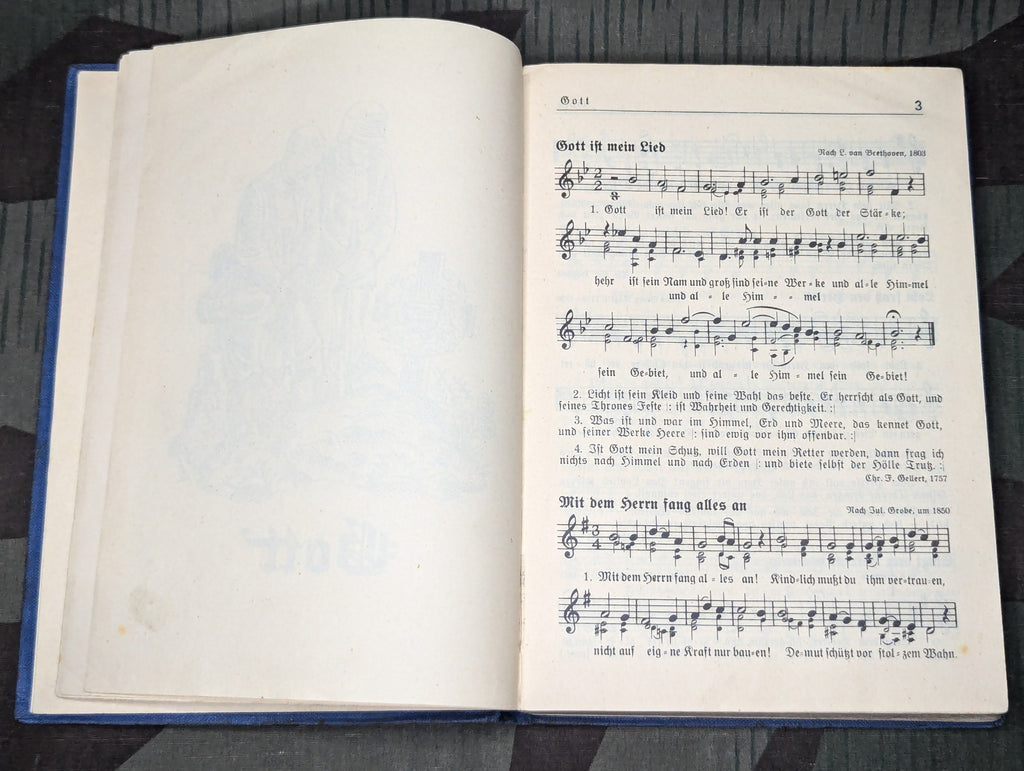 Gott 3
Gott ist mein Lied
Nach L. van Beethoven, 1803
1. Gott ist mein Lied! Er ist der Gott der Stär=ke;
hehr ist sein Nam und groß sind sei=ne Wer=ke und al=le Him=mel
und al=le Him==mel
sein Ge=biet, und al=le Him=mel sein Ge=biet!
2. Licht ist sein Kleid und seine Wahl das beste. Er herrscht als Gott, und
seines Thrones Feste |: ist Wahrheit und Gerechtigkeit. :|
3. Was ist und war im Himmel, Erd und Meere, das kennet Gott,
und seiner Werke Heere |: sind ewig vor ihm offenbar. :|
4. Ist Gott mein Schutz, will Gott mein Retter werden, dann frag ich
nichts nach Himmel und nach Erden |: und biete selbst der Hölle Trutz. :|
Chr. F. Gellert, 1757
Mit dem Herrn fang alles an
Nach Jul. Grobe, um 1850
1. Mit dem Herrn fang al=les an! Kind=lich mußt du ihm ver=trau=en,
nicht auf eig=ne Kraft nur bau=en! De=mut schützt vor stol=zem Wahn.
Gott